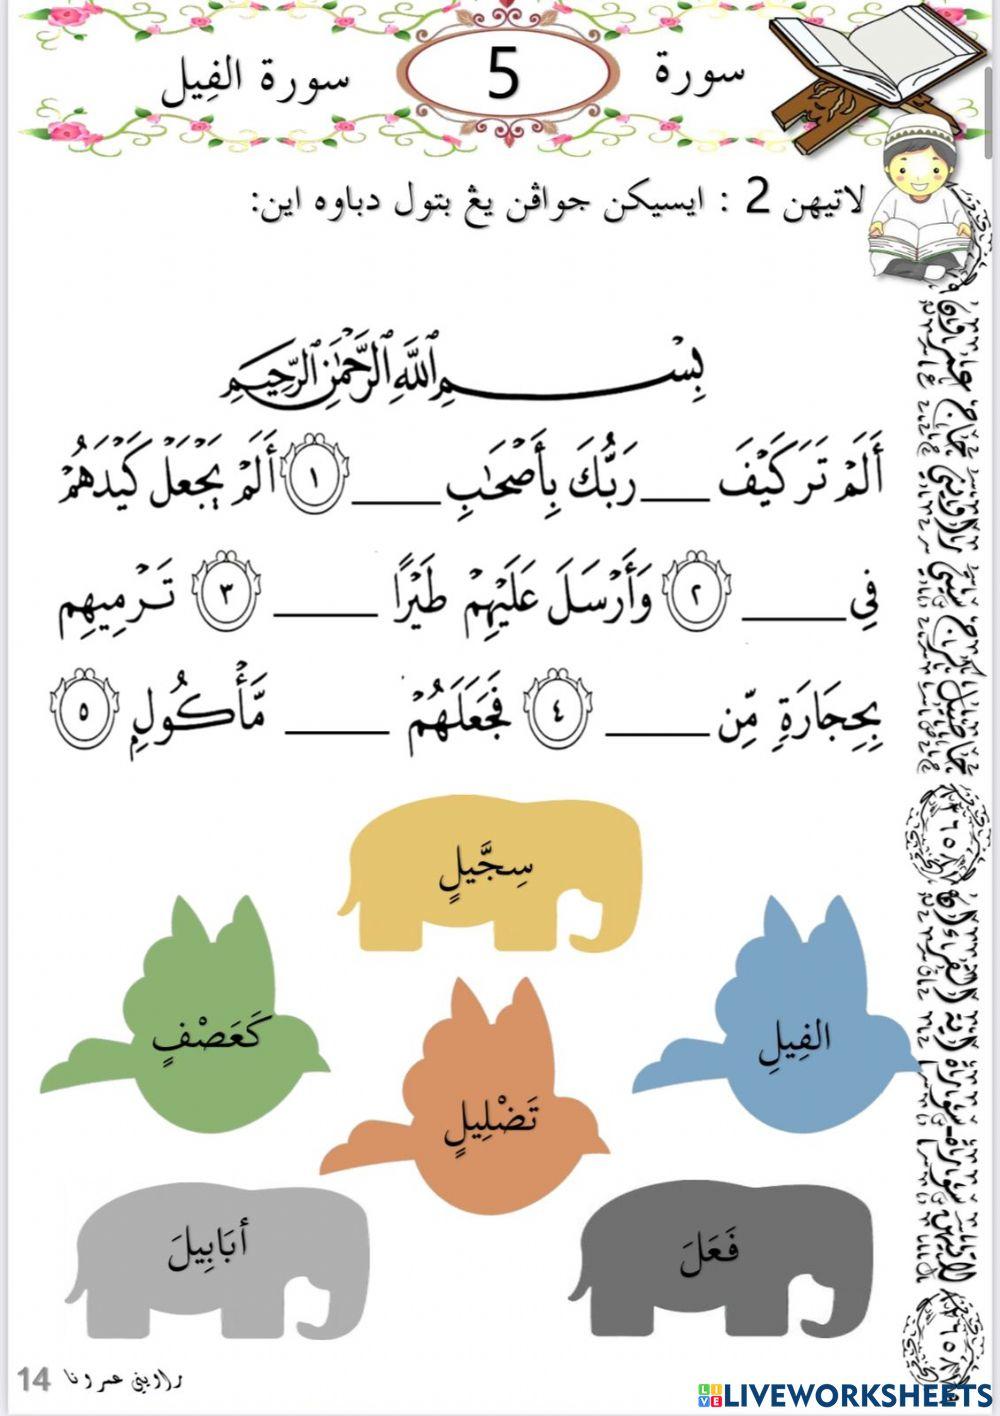 سورة 5 سورة الفِيل
لاتيهن 2 : ايسيكن جواڤن يڠ بتول دباوه اين:
بِسْمِ اللَّهِ الرَّحْمَٰنِ الرَّحِيمِ
أَلَمْ تَرَ كَيْفَ ____ رَبُّكَ بِأَصْحَٰبِ ____ ١ أَلَمْ يَجْعَلْ كَيْدَهُمْ
فِي ____ ٢ وَأَرْسَلَ عَلَيْهِمْ طَيْرًا ____ ٣ تَرْمِيهِم
بِحِجَارَةٍ مِّن ____ ٤ فَجَعَلَهُمْ ____ مَّأْكُولٍ ٥
سِجَّيلٍ
كَعَصْفٍ
الفِيلِ
تَضْلِيلٍ
أبَابِيلَ
فَعَلَ
14
LIVEWORKSHEETS